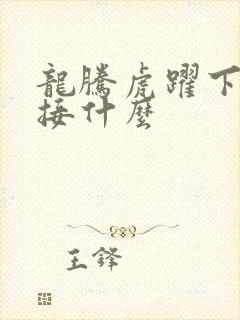 龍騰虎躍下
接什麼
王鋒